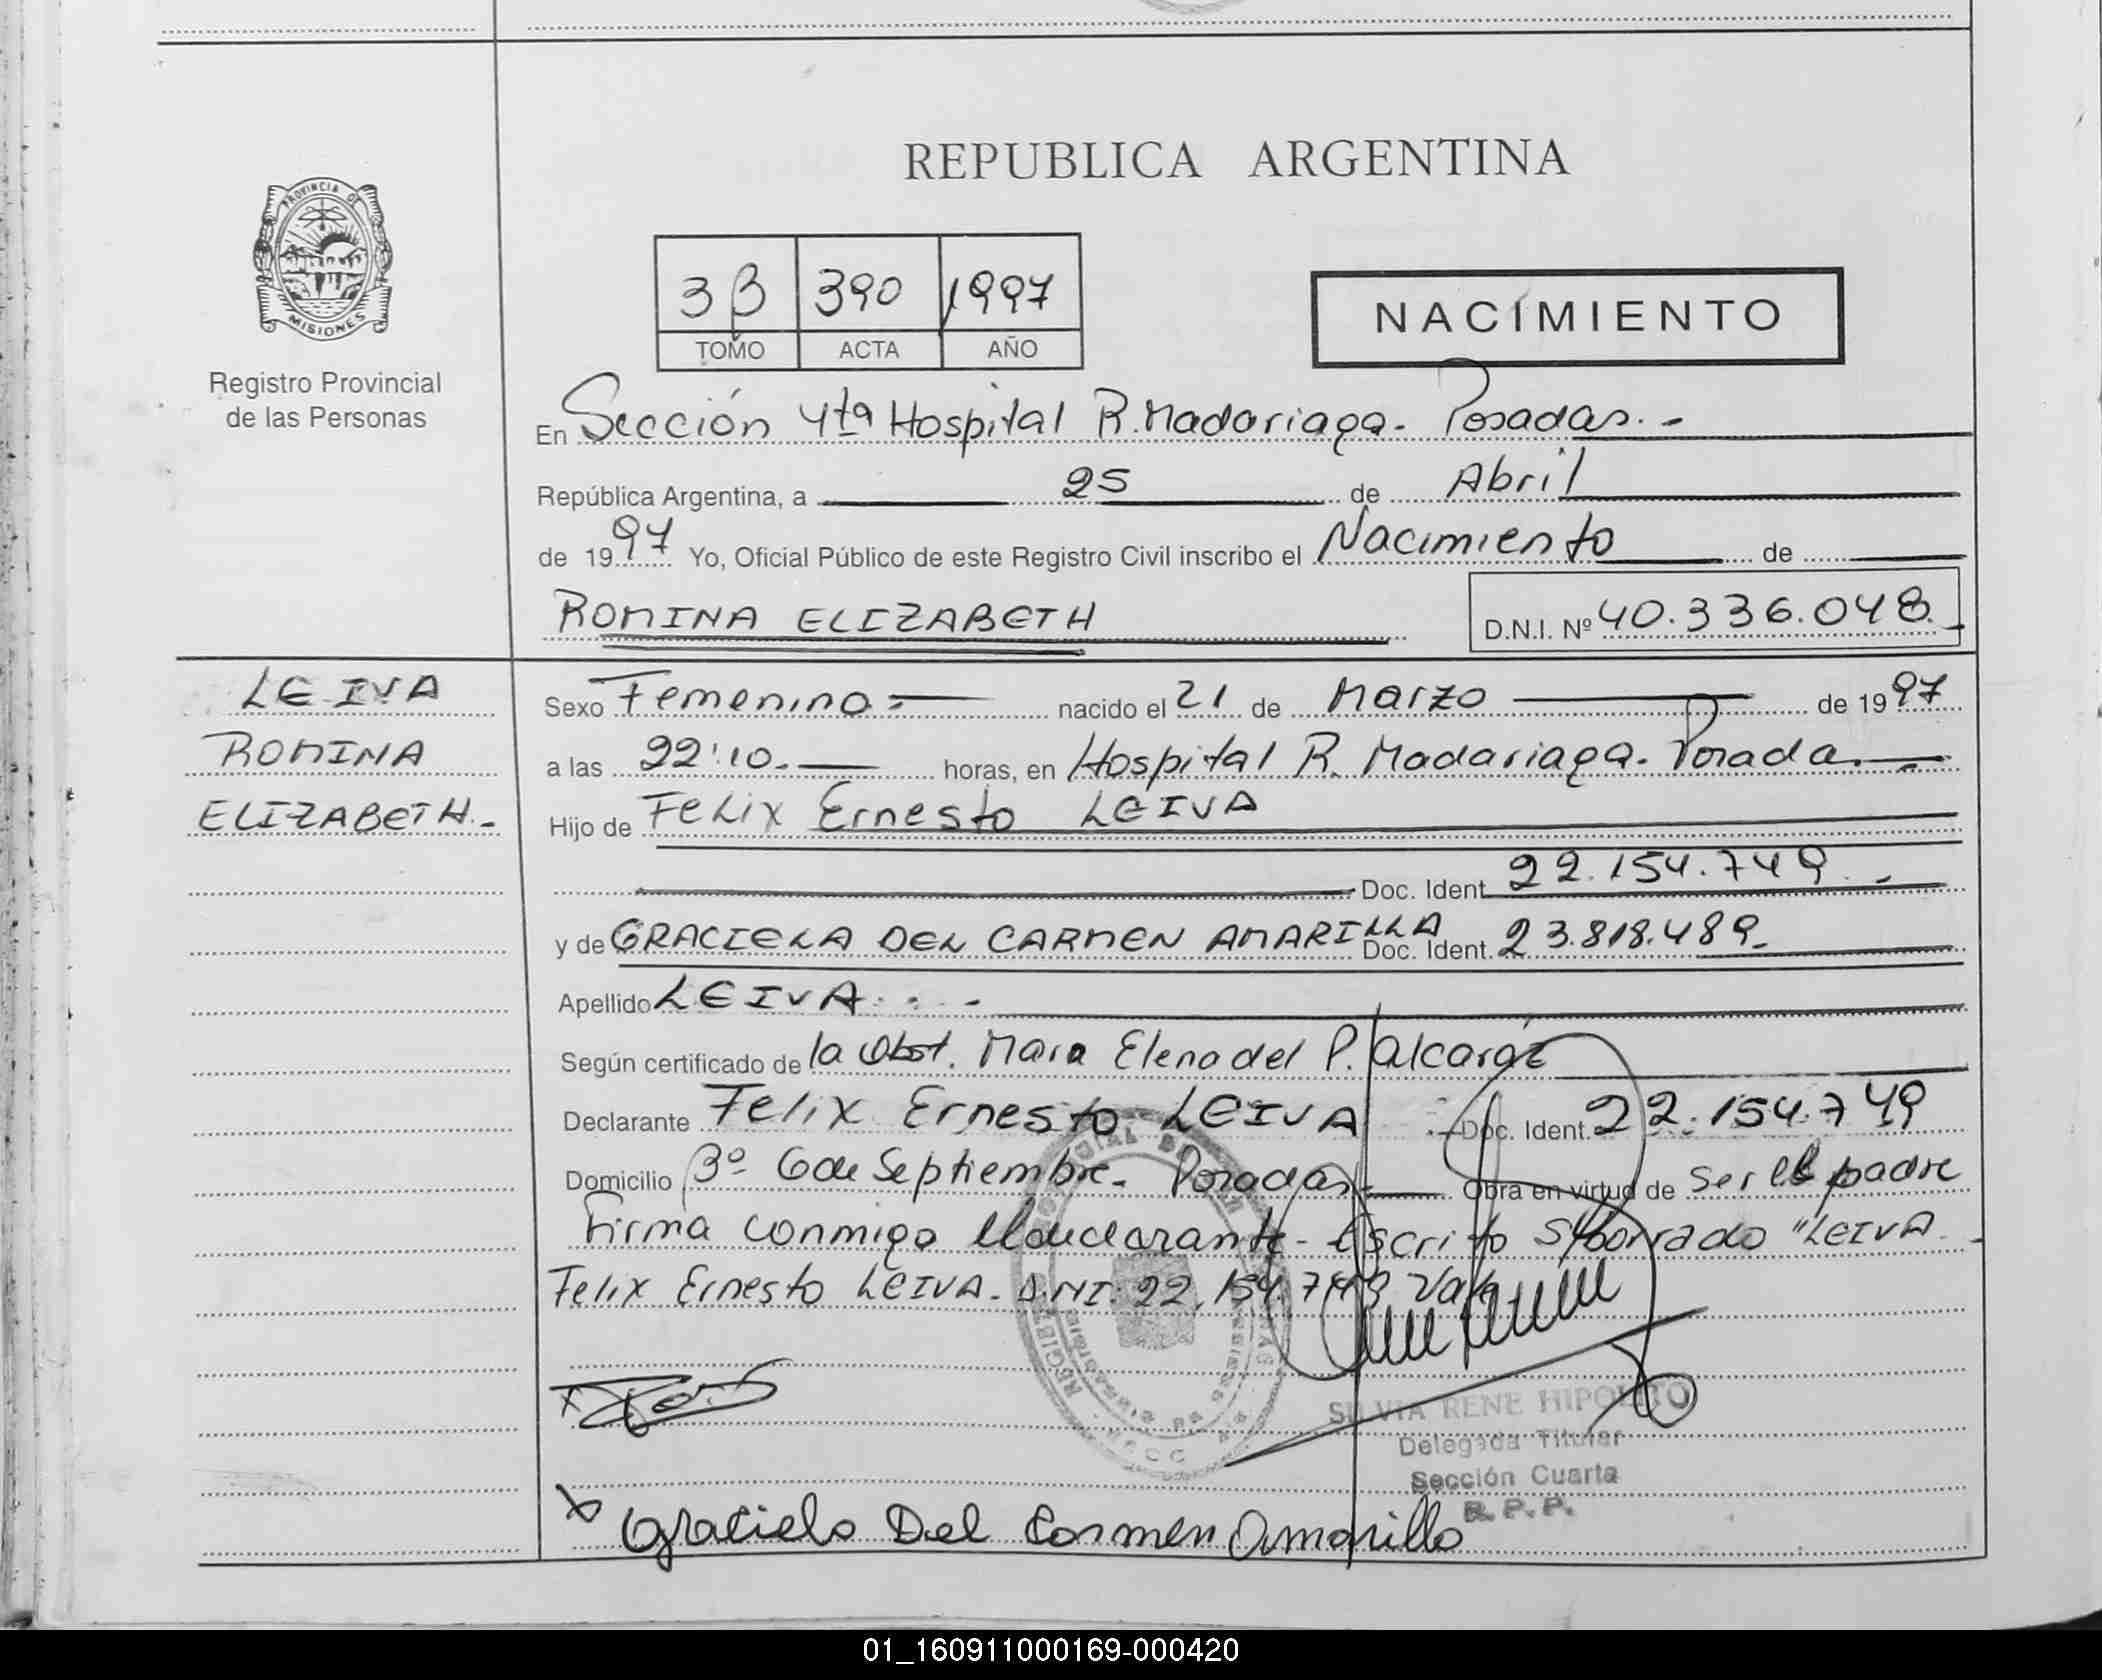 REPUBLICA ARGENTINA
PROVINCIA DE
MISIONES
Registro Provincial
de las Personas
3B 390 1997
TOMO ACTA AÑO
NACIMIENTO
En Sección 4ta Hospital R. Madariaga. Posadas. -
República Argentina, a 25 de Abril
de 1997 Yo, Oficial Público de este Registro Civil inscribo el Nacimiento de
ROMINA ELIZABETH
D.N.I. Nº 40.336.048.
LEIVA
ROMINA
ELIZABETH.-
Sexo Femenino nacido el 21 de Marzo de 1997
a las 22:10. horas, en Hospital R. Madariaga. Posada.
Hijo de Felix Ernesto LEIVA
Doc. Ident. 22.154.749. -
y de GRACIELA DEL CARMEN AMARILLA Doc. Ident. 23.818.489.
Apellido LEIVA. . . -
Según certificado de la Obst. Elena del P. Alcaráz
Declarante Felix Ernesto LEIVA Doc. Ident. 22.154.749
Domicilio Bº 6 de Septiembre. Posadas. Obra en virtud de ser el padre
Firma conmigo el declarante - Escrito S/borrado "LEIVA.
Felix Ernesto LEIVA. D.NI. 22.154.749 Vale
SILVIA RENE HIPOLITO
Delegada Titular
Sección Cuarta
R.P.P.
x Graciela Del Carmen Amarilla
01_160911000169-000420